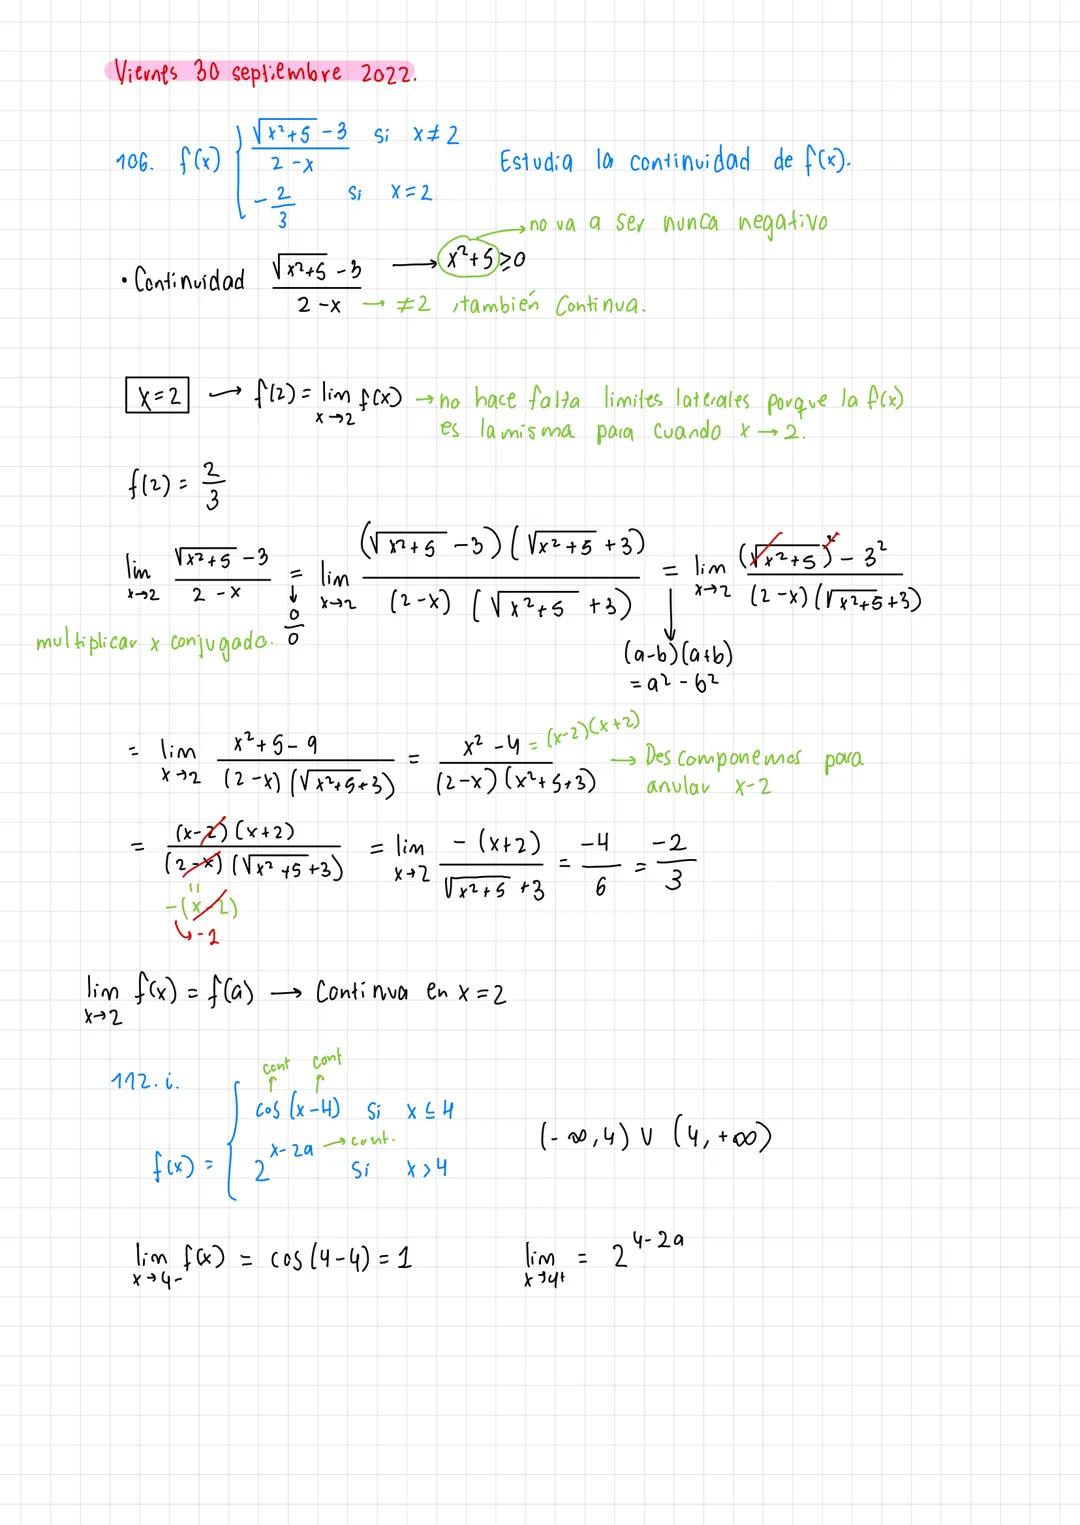 Viernes 30 septiembre 2022.
106. f(x) { (√x²+5 - 3)/(2 - x) si x≠2
-2/3 si x=2
Estudia la continuidad de f(x).
→ no va a ser nunca negativo
• Continuidad (√x²+5 - 3)/(2 - x) → x²+5 ≥ 0
→ ≠2, también Continua.
x=2 → f(2) = lim x→2 f(x) → no hace falta limites laterales porque la f(x)
es la misma para cuando x → 2.
f(2) = 2/3
lim x→2 (√x²+5 - 3)/(2 - x) = lim x→2 ((√x²+5 - 3)(√x²+5 + 3))/((2-x)(√x²+5 + 3)) = lim x→2 ((√x²+5)² - 3²)/((2-x)(√x²+5+3))
↓ 0/0
multiplicar x conjugado.
(a-b)(a+b)
= a² - b²
= lim x→2 (x²+5-9)/((2-x)(√x²+5+3)) = (x²-4)/((2-x)(x²+5+3)) = (x-2)(x+2)
→ Descomponemos para
anular x-2
= ((x-2)(x+2))/((2-x)(√x²+5+3)) = lim x→2 (-(x+2))/(√x²+5 +3) = -4/6 = -2/3
=
-(x-2)
↳ -1
lim x→2 f(x) = f(a) → Continua en x=2
112. i.
cont cont
f(x) = { cos(x-4) si x ≤ 4
2^(x-2a) → cont. si x>4
(-∞,4) ∪ (4,+∞)
lim x→4- f(x) = cos(4-4) = 1
lim x→4+ = 2^(4-2a)